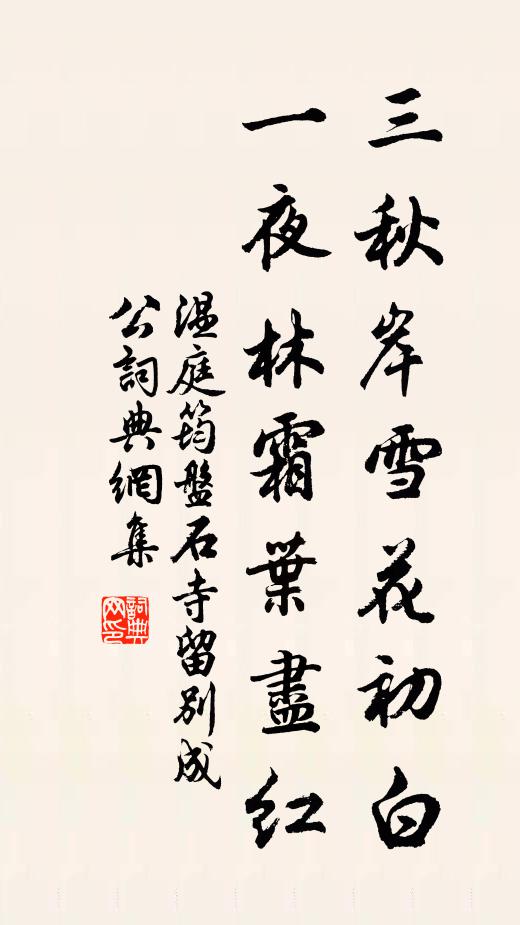 三秋岸雪花初白
一夜林霜葉盡紅
溫庭筠盤石寺留別成
公詞典網集
詞典
网印